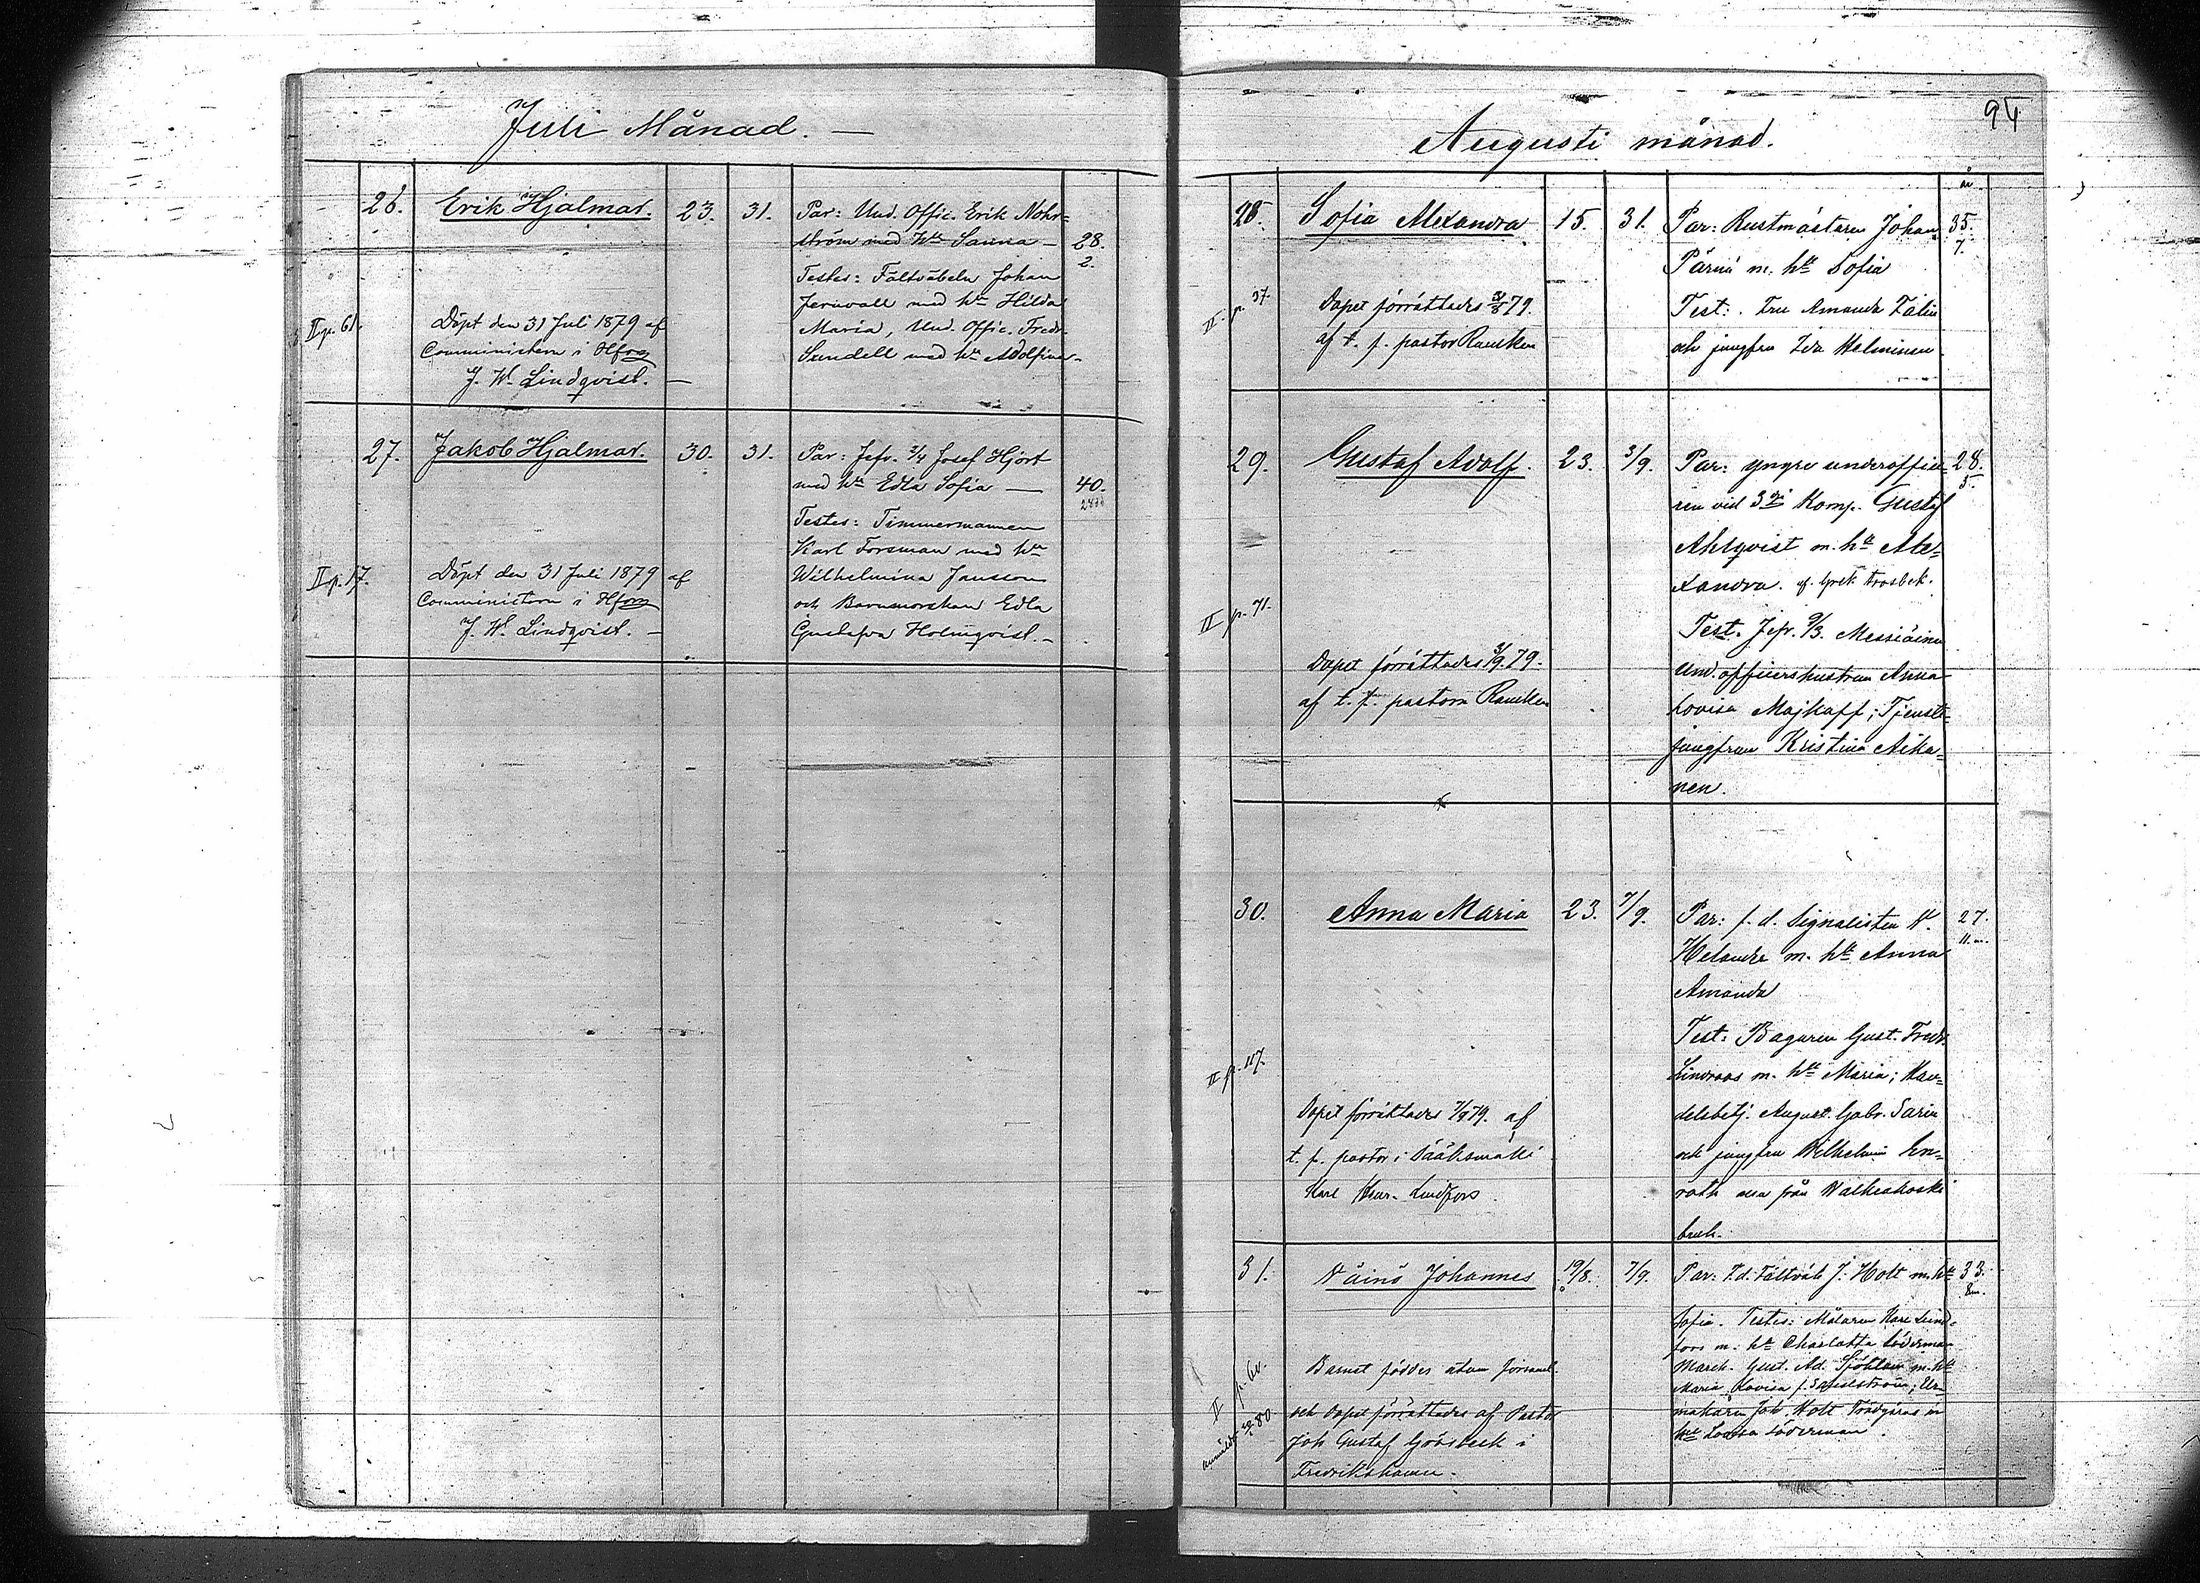 Juli Månad. —
26. Erik Hjalmar. 23. 31. Par: Und. Offic. Erik Nohr-
ström med h:u Sanna — 28.
2.
Testes: Fältväbeln Johan
Jernvall med h:u Hilda
Maria, Und. Offic. Fredr.
Sundell med h:u Adolfina.
II p. 61.
Döpt den 31 Juli 1879 af
Comministern i Hfors
J. W. Lindqvist. —
27. Jakob Hjalmar. 30. 31. Par: Jefr. 2/4 Josef Hjort
med h:u Edla Sofia — 40.
Testes: Timmermannen
Karl Forsman med h:u
Wilhelmina Jansson
och Barnmorskan Edla
Gustafva Holmqvist. —
II p. 17.
Döpt den 31 Juli 1879 af
Comministern i Hfors
J. W. Lindqvist. —
94
Augusti månad.
år
28. Sofia Alexandra 15. 31. Par: Rustmästaren Johan 35.
7.
Pärnä m. h:u Sofia
Test: Fru Amanda Talin
och jungfru Ida Helminen.
II. p. 37.
Dopet förrättades 31/8 79.
af t. f. pastor Rancken
29. Gustaf Adolf. 23. 3/9. Par: yngre underoffice- 28.
5.
ren vid 3:dje Komp. Gustaf
Ahlqvist m. h:u Ale-
xandra. af Grek. trosbek.
Test. Jefr. 9/3. Messiäinen
Und.officershustrun Anna
Lovisa Majkaff; Tjenste-
jungfrun Kristina Aika-
nen.
II p. 71.
Dopet förrättades 3/9 79.
af t. f. pastorn Rancken
30. Anna Maria 23. 7/9. Par: f. d. Signalisten N. 27.
11. m.
Helander m. h:u Anna
Amanda
Test: Bagaren Gust. Fredr.
Lindroos m. h:u Maria; Han-
delsbetj. August. Gabr. Sarin
och jungfru Wilhelmin En-
roth alla från Walkiakoski
bruk.
II p. 117.
Dopet förrättades 7/9 79. af
t. f. pastor i Sääksmäki
Karl Lindfors.
31. Väinö Johannes 19/8. 7/9. Par: F. d. Fältväb J. Holt m. h:u 33.
8m.
Sofia. Testes: Målaren Karl Lind-
fors m. h:u Charlotta Söderman
March. Gust. Ad. Sjöblom m. h:u
Maria Lovisa f. ; Ur-
makaren Joh Holt Trädgårds m
h:u Lovisa Söderman.
II p. 60.
anmäldt 80.
Barnet föddes utom församl.
och dopet förrättades af Pastor
Joh Gustaf Grönbeck i
Fredrikshamn.